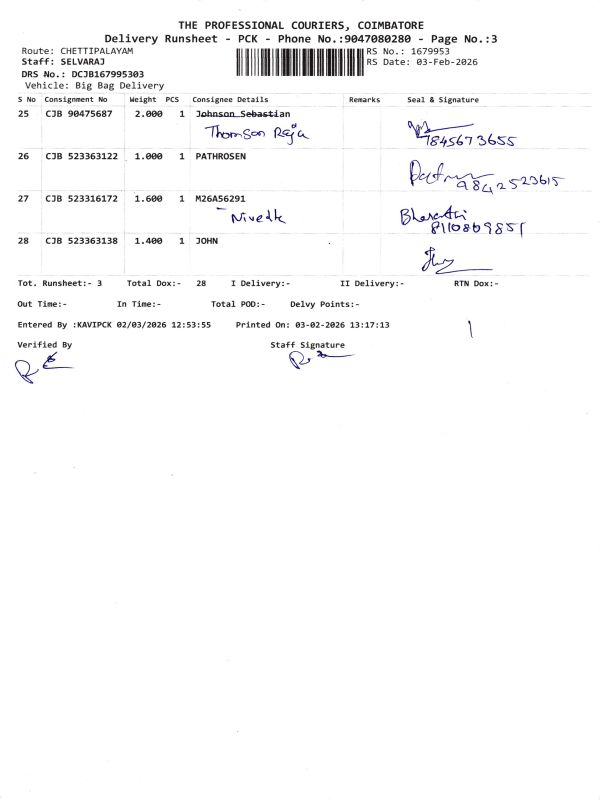 THE PROFESSIONAL COURIERS, COIMBATORE
Delivery Runsheet - PCK - Phone No.:9047080280 - Page No.:3
Route: CHETTIPALAYAM RS No.: 1679953
Staff: SELVARAJ RS Date: 03-Feb-2026
DRS No.: DCJB167995303
Vehicle: Big Bag Delivery
S No Consignment No Weight PCS Consignee Details Remarks Seal & Signature
25 CJB 90475687 2.000 1 Johnson Sebastian
Thomson Raja
7845673655
26 CJB 523363122 1.000 1 PATHROSEN
9842523615
27 CJB 523316172 1.600 1 M26A56291
Bharathi
8110869851
28 CJB 523363138 1.400 1 JOHN
Tot. Runsheet:- 3 Total Dox:- 28 I Delivery:- II Delivery:- RTN Dox:-
Out Time:- In Time:- Total POD:- Delvy Points:-
Entered By :KAVIPCK 02/03/2026 12:53:55 Printed On: 03-02-2026 13:17:13
Verified By Staff Signature